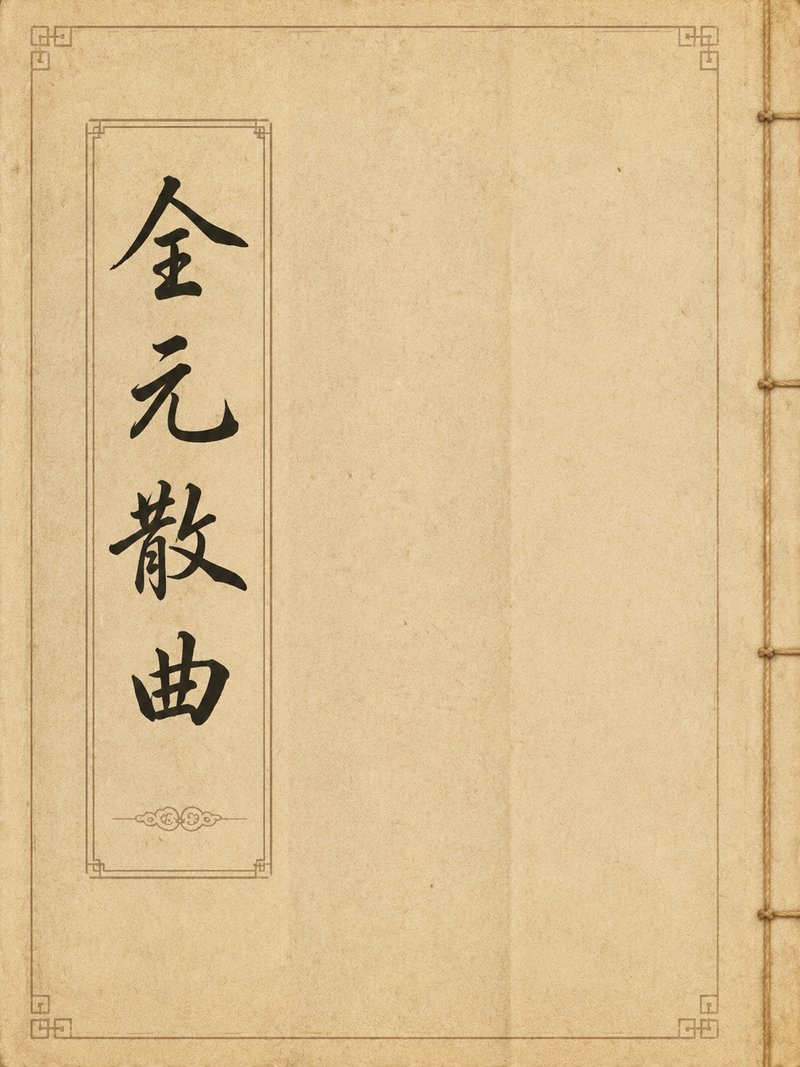 全元散曲